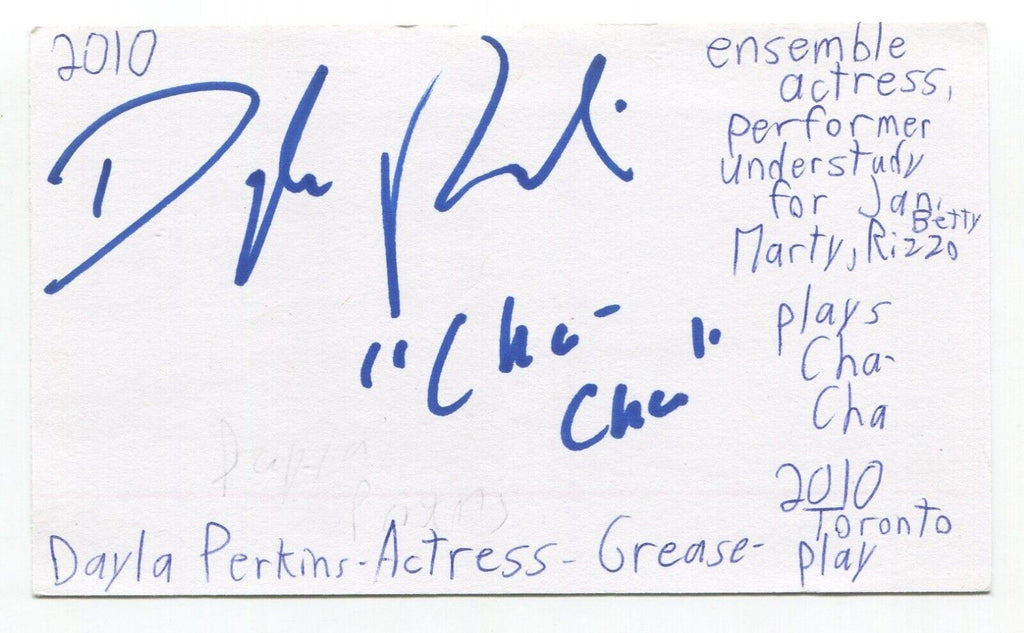 2010
Dayla Perkins
"Cha-
Cha"
ensemble
actress,
performer
understudy
for Jan,
Betty
Marty, Rizzo
plays
Cha-
Cha
2010
Toronto
play
Dayla Perkins-Actress-Grease-